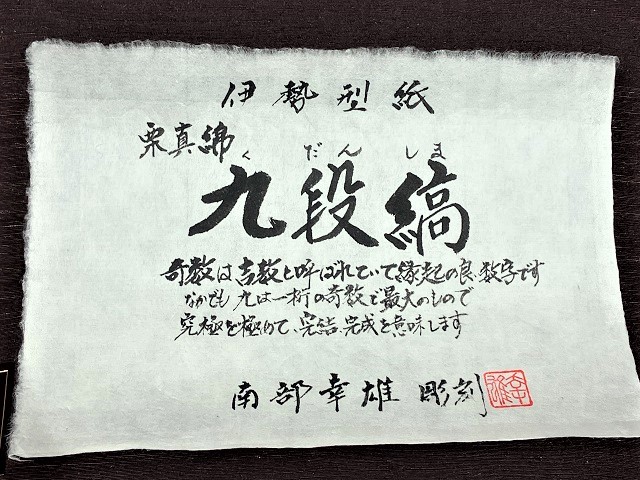 伊勢型紙
栗真綿
くだんしま
九段縞
奇数は吉数と呼ばれていて縁起の良い数字です
なかでも九は一桁の奇数で最大のもので
究極を極めて、完結、完成を意味します
南部幸雄 彫刻
幸雄